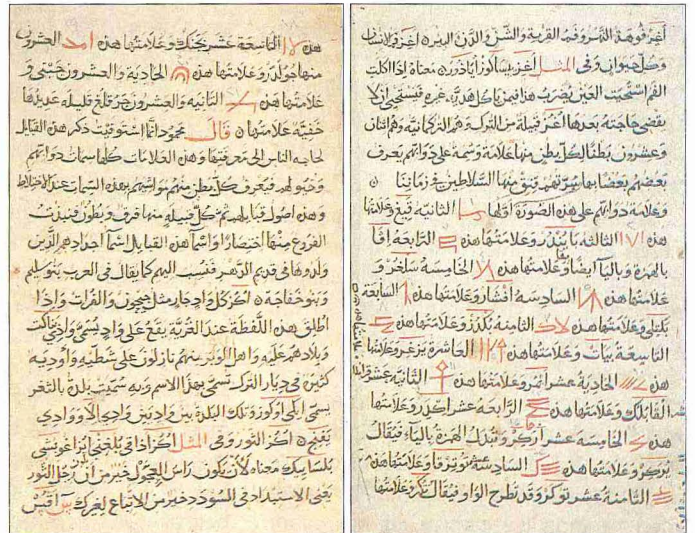 أغز فوهة النهر وفم القربة والشن والدن أغز فو الانسان
وكل حيوان وفى المثل أغز ييسا كوز معناه اذا اكلت
الفم استحيت العين يضرب هذا فيمن ياكل هدية غيره فيستحيى ان لا
يقضى حاجته بعدها أغز قبيلة من الترك وهم التركمانية وهم اثنان
وعشرون بطنا لكل بطن منها علامة وسمة على دوابهم يعرف
بعضهم بعضا بها منها السلاطين فى زماننا
وعلامة دوابهم على هذه الصورة أولها الثانية قيغ وعلامتها
هذه الثالثه بايندر وعلامتها هذه الرابعه
بالهمزة وباليا ايضا وعلامتها هذه الخامسه سلغر و
علامتها هذه السادسه أفشار وعلامتها هذه السابعة
بكتلى وعلامتها هذه الثامنه بكدز وعلامتها هذه
التاسعة بيات وعلامتها هذه العاشرة يزغر وعلامتها
هذه الحادية عشر ايمر وعلامتها هذه الثانيه عشر
وعلامتها هذه الرابعه عشر اكدر وعلامتها
هذه الخامسه عشر اركر وتبدل الهمزة بالياء فيقال
يركر وعلامتها هذه السادسه عشر وعلامتها هذه
الثامنة عشر توكر وقد تطرح الواو فيقال تكر وعلامتها
هذه التاسعة عشر وعلامتها هذه العشرون
منها جولدر وعلامتها هذه الحادية والعشرون جبنى و
علامتها هذه الثانيه والعشرون قليله عددها
خفية علامتها قال محمود انما استوفيت ذكر هذه القبايل
لحاجه الناس الى معرفتها وهذه العلامات كلها سمات دوابهم
وخيولهم فيعرف كل بطن منهم مواشيهم بهذه السمات عند الاختلاط
وهذه اصول قبايلهم ثم كل قبيله منها فرق وبطون فنبذت
الفروع منها اختصارا واسما هذه القبايل اسما اجدادهم الذين
ولدوها فى قديم الدهر فنسب اليهم كما يقال فى العرب بنو سليم
وبنو خفاجة اكز كل واد جار مثل جيحون والفرات واذا
اطلق هذه اللفظة عند الغزية يقع على واد يسمى وادى بناكت
وبلادهم عليه واهل الوبر منهم نازلون على شطيه واوديه
كثيرة فى ديار الترك تسمى بهذا الاسم وبه سميت بلدة بالثغر
يسمى ايكى اوكوز وتلك البلدة بين واديين وادى ايلا ووادى
يفنج اكز الثور وفى المثل
معناه لان يكون راس العجول خير من ان رجل الثور
يعنى الاستبداد فى السودد خير من الاتباع لغيرك